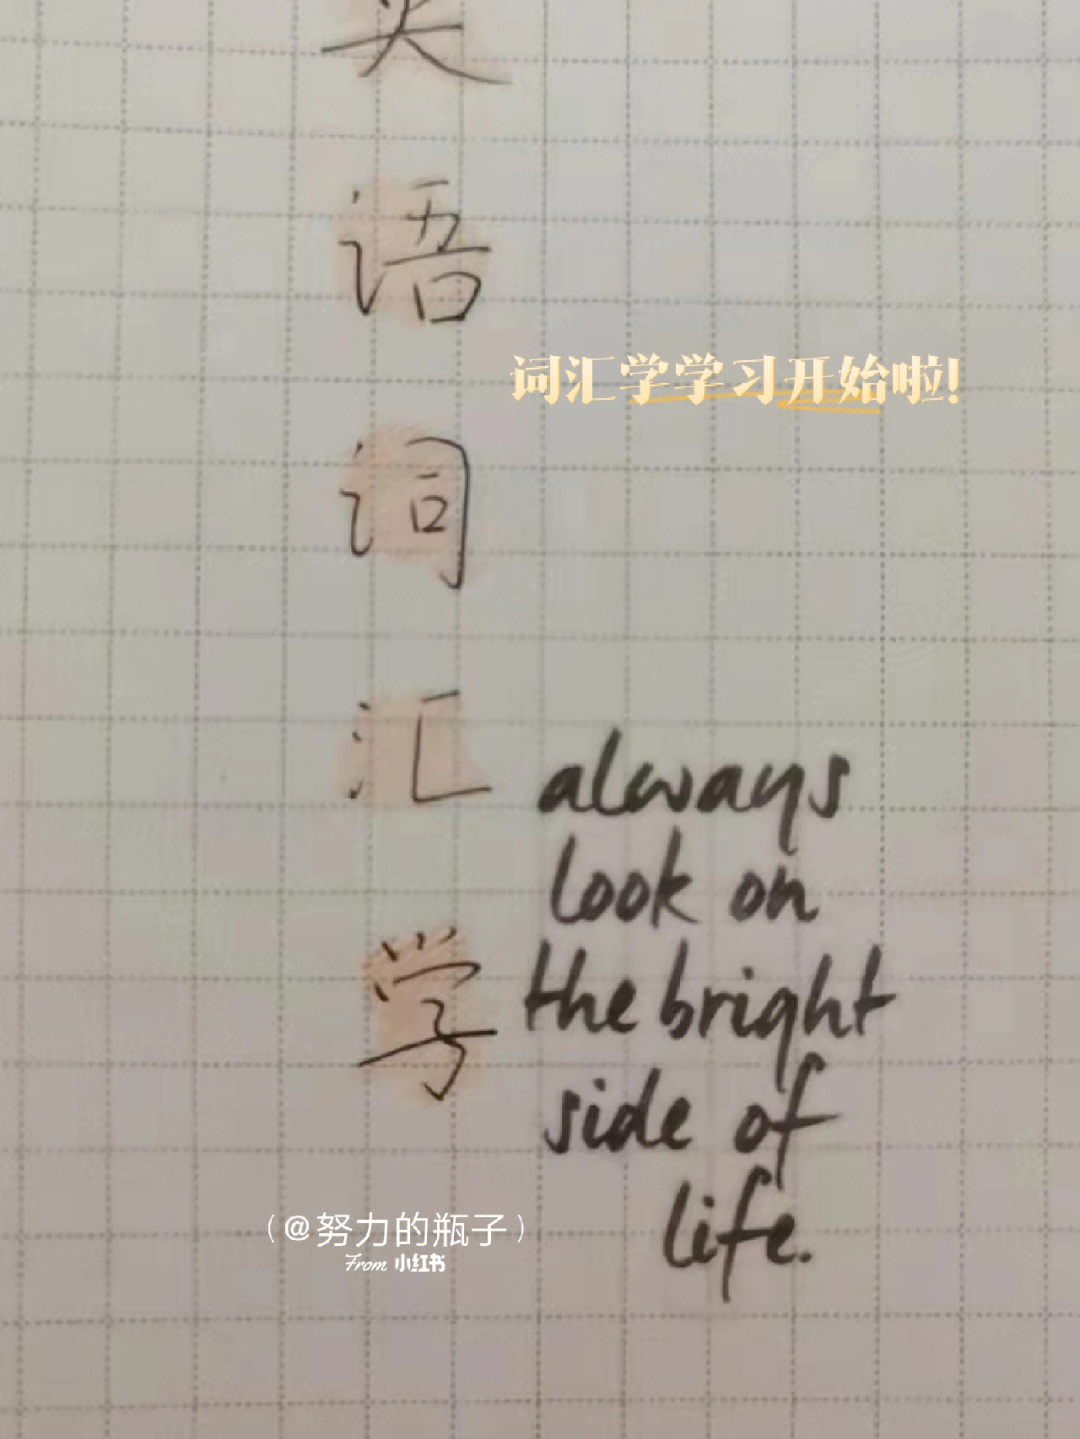 英
语
词
汇
学
词汇学学习开始啦!
always
look on
the bright
side of
life.
(@努力的瓶子)
From 小红书